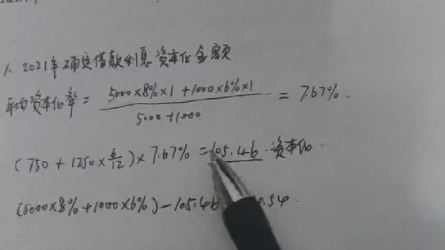 1、2021年确定借款利息资本化金额
平均资本化率 = (5000×8%×1+1000×6%×1)/(5000+1000) = 7.67%.
(750+1250×6/12)×7.67%=105.46 资本化.
(5000×8%+1000×6%)-105.46 .54.